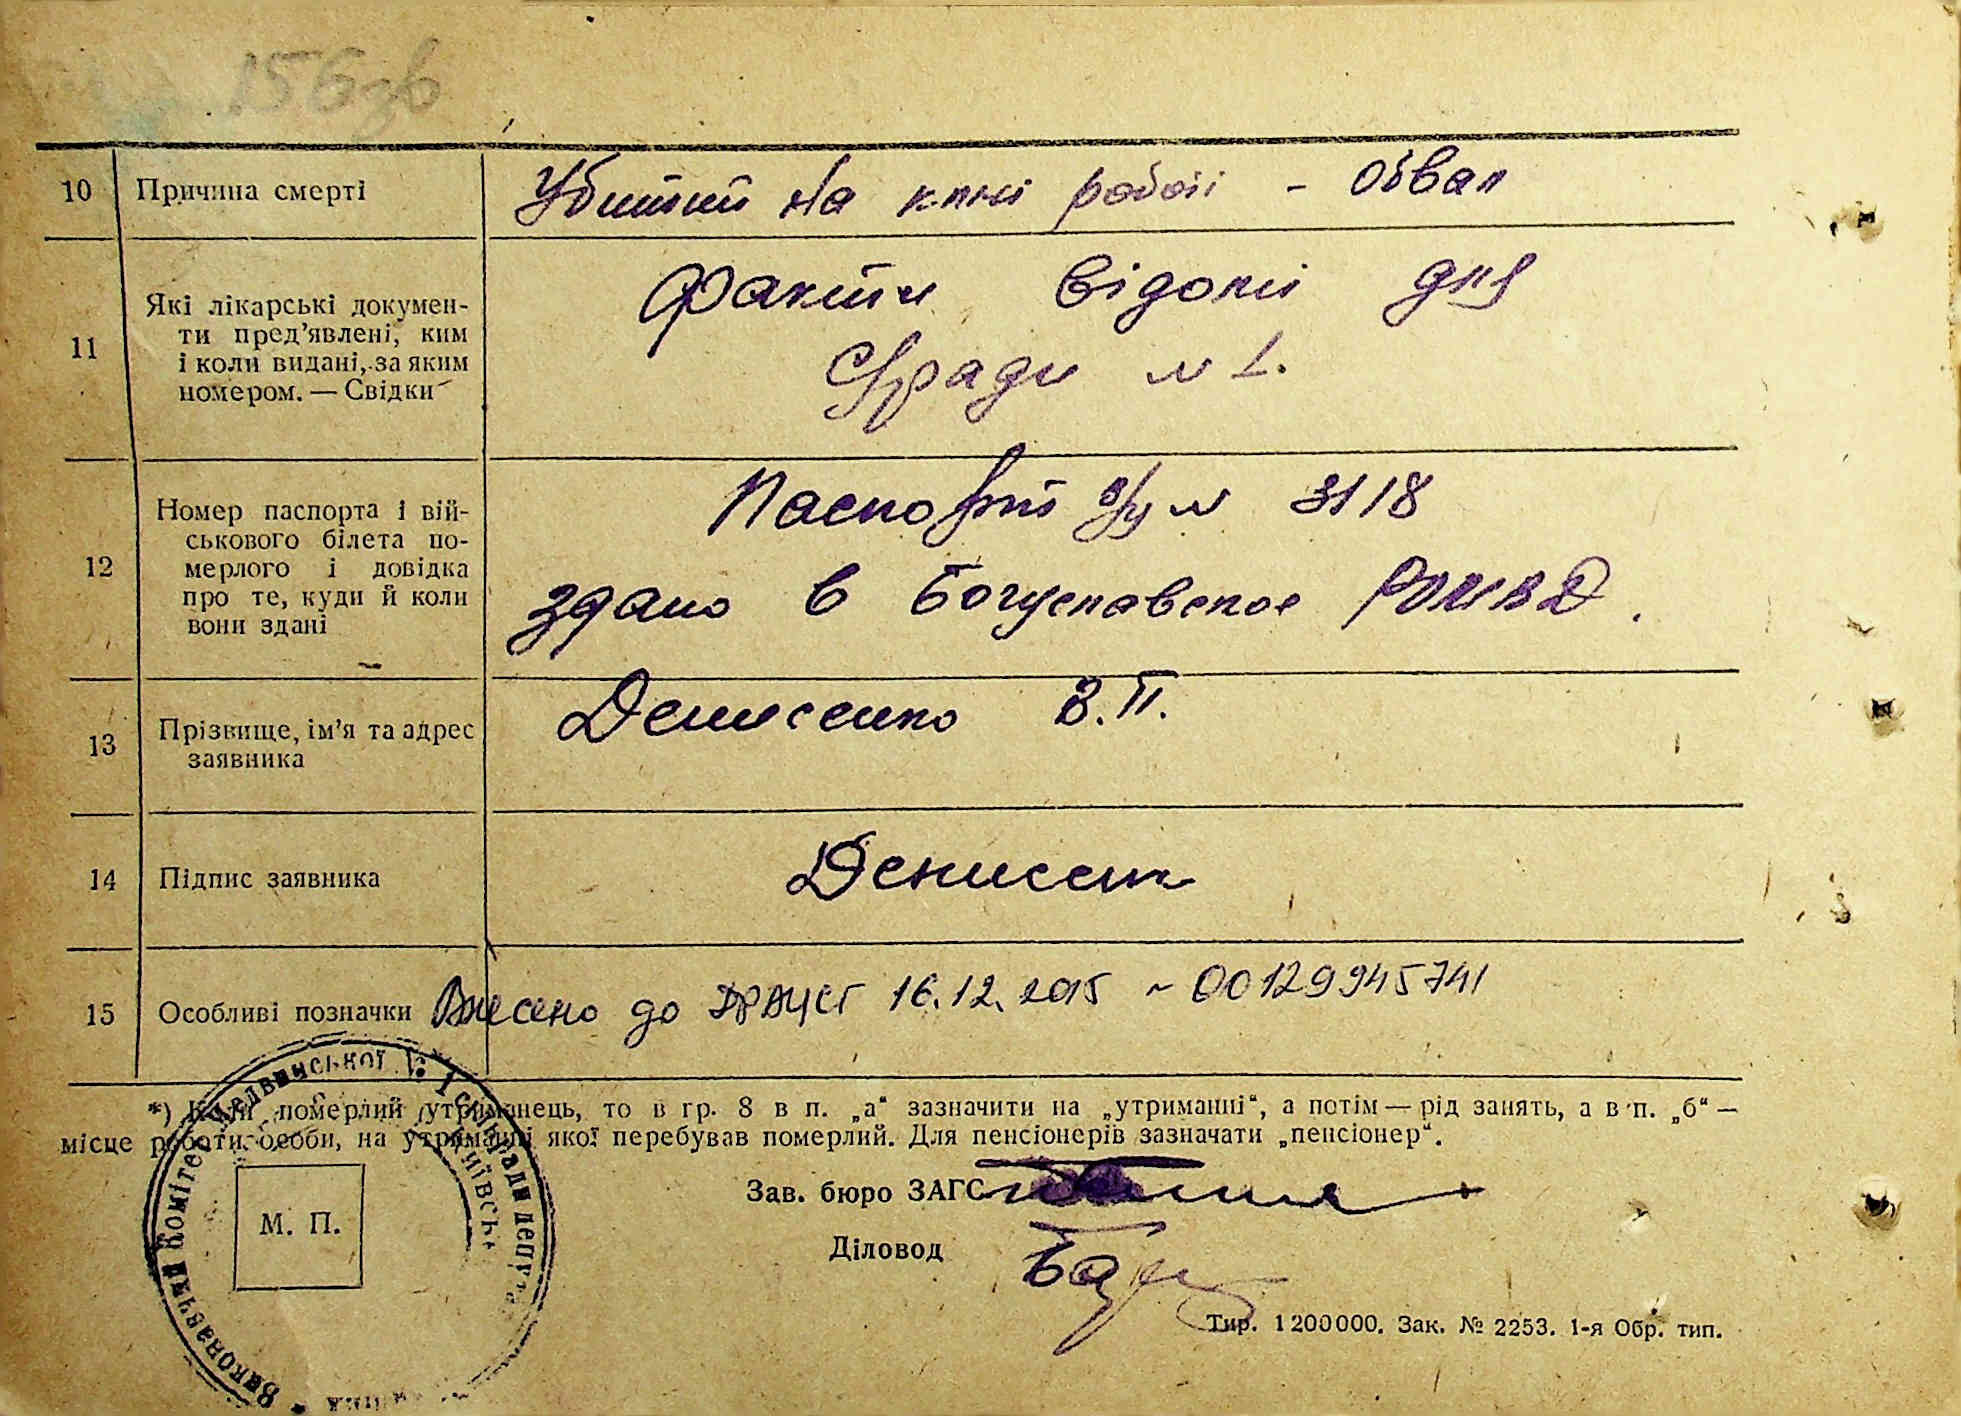 156зв
10 Причина смерті Убитий на клні роботі - Обвал
11 Які лікарські докумен-
ти пред'явлені, ким
і коли видані, за яким
номером. — Свідки
Факти відомі для
С/ради № 1.
12 Номер паспорта і вій-
ськового білета по-
мерлого і довідка
про те, куди й коли
вони здані
Паспорт № 3118
здано в Богуславское РОМВД.
13 Прізвище, ім'я та адрес
заявника
Денисенко В.П.
14 Підпис заявника Денисен
15 Особливі позначки Внесено до ДРАЦСГ 16.12.2015 ~ 00129945741
*) Коли померлий утриманець, то в гр. 8 в п. „а“ зазначити на „утриманні“, а потім — рід занять, а в п. „б“ —
місце роботи особи, на утриманні якої перебував померлий. Для пенсіонерів зазначати „пенсіонер“.
Зав. бюро ЗАГС
Діловод
М. П.
Виконавчий Комітет Медвинської № 1 сільради депут
Київськ
Тир. 1200000. Зак. № 2253. 1-я Обр. тип.